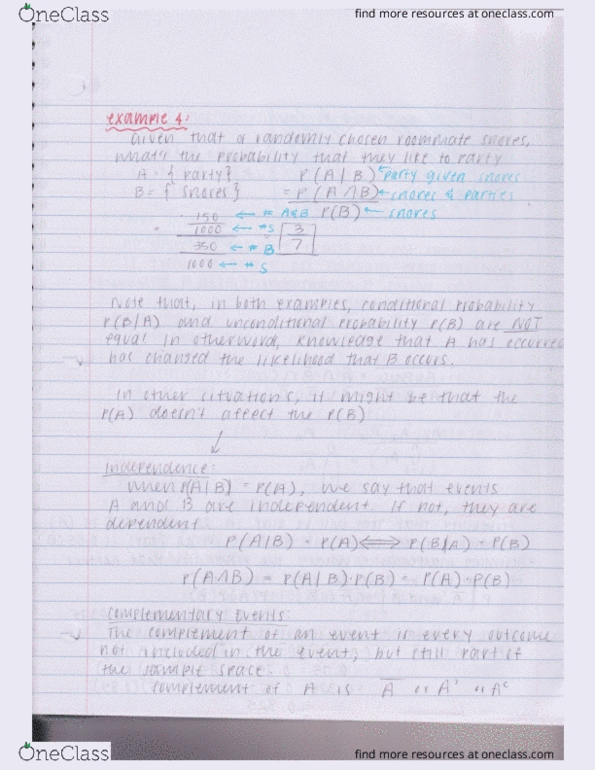 OneClass
find more resources at oneclass.com
example 4:
Given that a randomly chosen roommate snores,
what's the probability that they like to party
A = {party} P(A|B) ← party given snores
B = { snores} = P(A∩B) ← snores & parties
150 ← # A&B P(B) ← snores
1000 ← #S 3
350 ← # B 7
1000 ← # S
Note that, in both examples, conditional probability
P(B|A) and unconditional probability P(B) are NOT
equal in otherword, knowledge that A has occurred
→ has changed the likelihood that B occurs.
In other situations, it might be that the
P(A) doesn't affect the P(B)
↓
Independence:
when P(A|B) = P(A), we say that events
A and B are independent. If not, they are
dependent
P(A|B) = P(A) ⟺ P(B|A) = P(B)
P(A∩B) = P(A|B)·P(B) = P(A)·P(B)
Complementary Events:
→ The complement of an event is every outcome
not included in the event, but still part of
the sample space.
complement of A is A̅ or A' or Aᶜ
OneClass
find more resources at oneclass.com